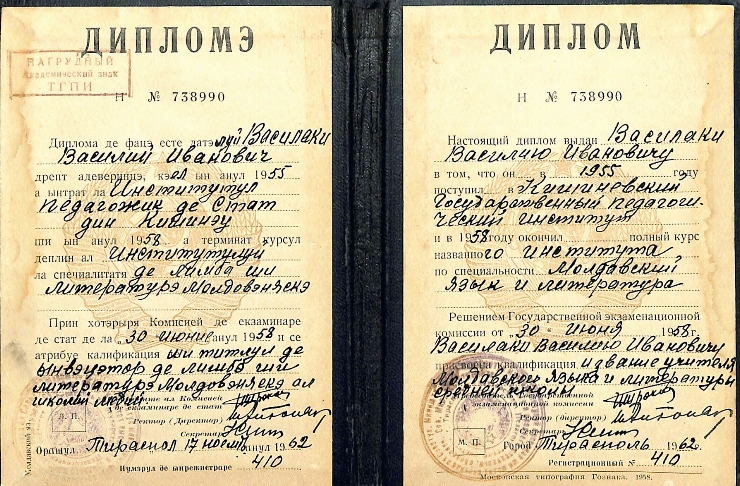 ДИПЛОМЭ
НАГРУДНЫЙ
Академический знак
ТГПИ
Н № 738990
Диплома де фацэ есте датэ луй Василаки
Василий Иванович
дрепт адеверинцэ, кэ ел ын 1955
а ынтрат ла Институтул
педагожик де Стат
дин Кишинэу
ши ын анул 1958 а терминат курсул
деплин ал Институтулуй
ла специалитатя де лимба ши
литература Молдовеняскэ
Прин хотэрыря Комисией де екзаминаре
де стат де ла 30 июние анул 1958 и се
атрибуе калификация ши титлул де
ынвэцэтор де лимба ши
литература Молдовеняскэ ал
школий медий
ал Комисией
де екзаминаре де стат
Ректор (Директор)
Секретар
Л. П.
Орашул Тирасполь 17 ноемб. анул 1962
Нумэрул де ынрежистраре 410
ДИПЛОМ
Н № 738990
Настоящий диплом выдан Василаки
Василию Ивановичу
в том, что он в 1955 году
поступил в Кишиневский
Государственный педагоги-
ческий институт
и в 1958 году окончил полный курс
названного института
по специальности Молдавский
язык и литература
Решением Государственной экзаменационной
комиссии от 30 июня 1958 г.
Василаки Василию Ивановичу
присвоена квалификация и звание учителя
Молдавского языка и литературы
средней школы
Государственной
экзаменационной комиссии
Ректор (директор)
Секретарь
М. П.
Город Тирасполь 1962 г.
Регистрационный № 410
Московская типография Гознака. 1958.